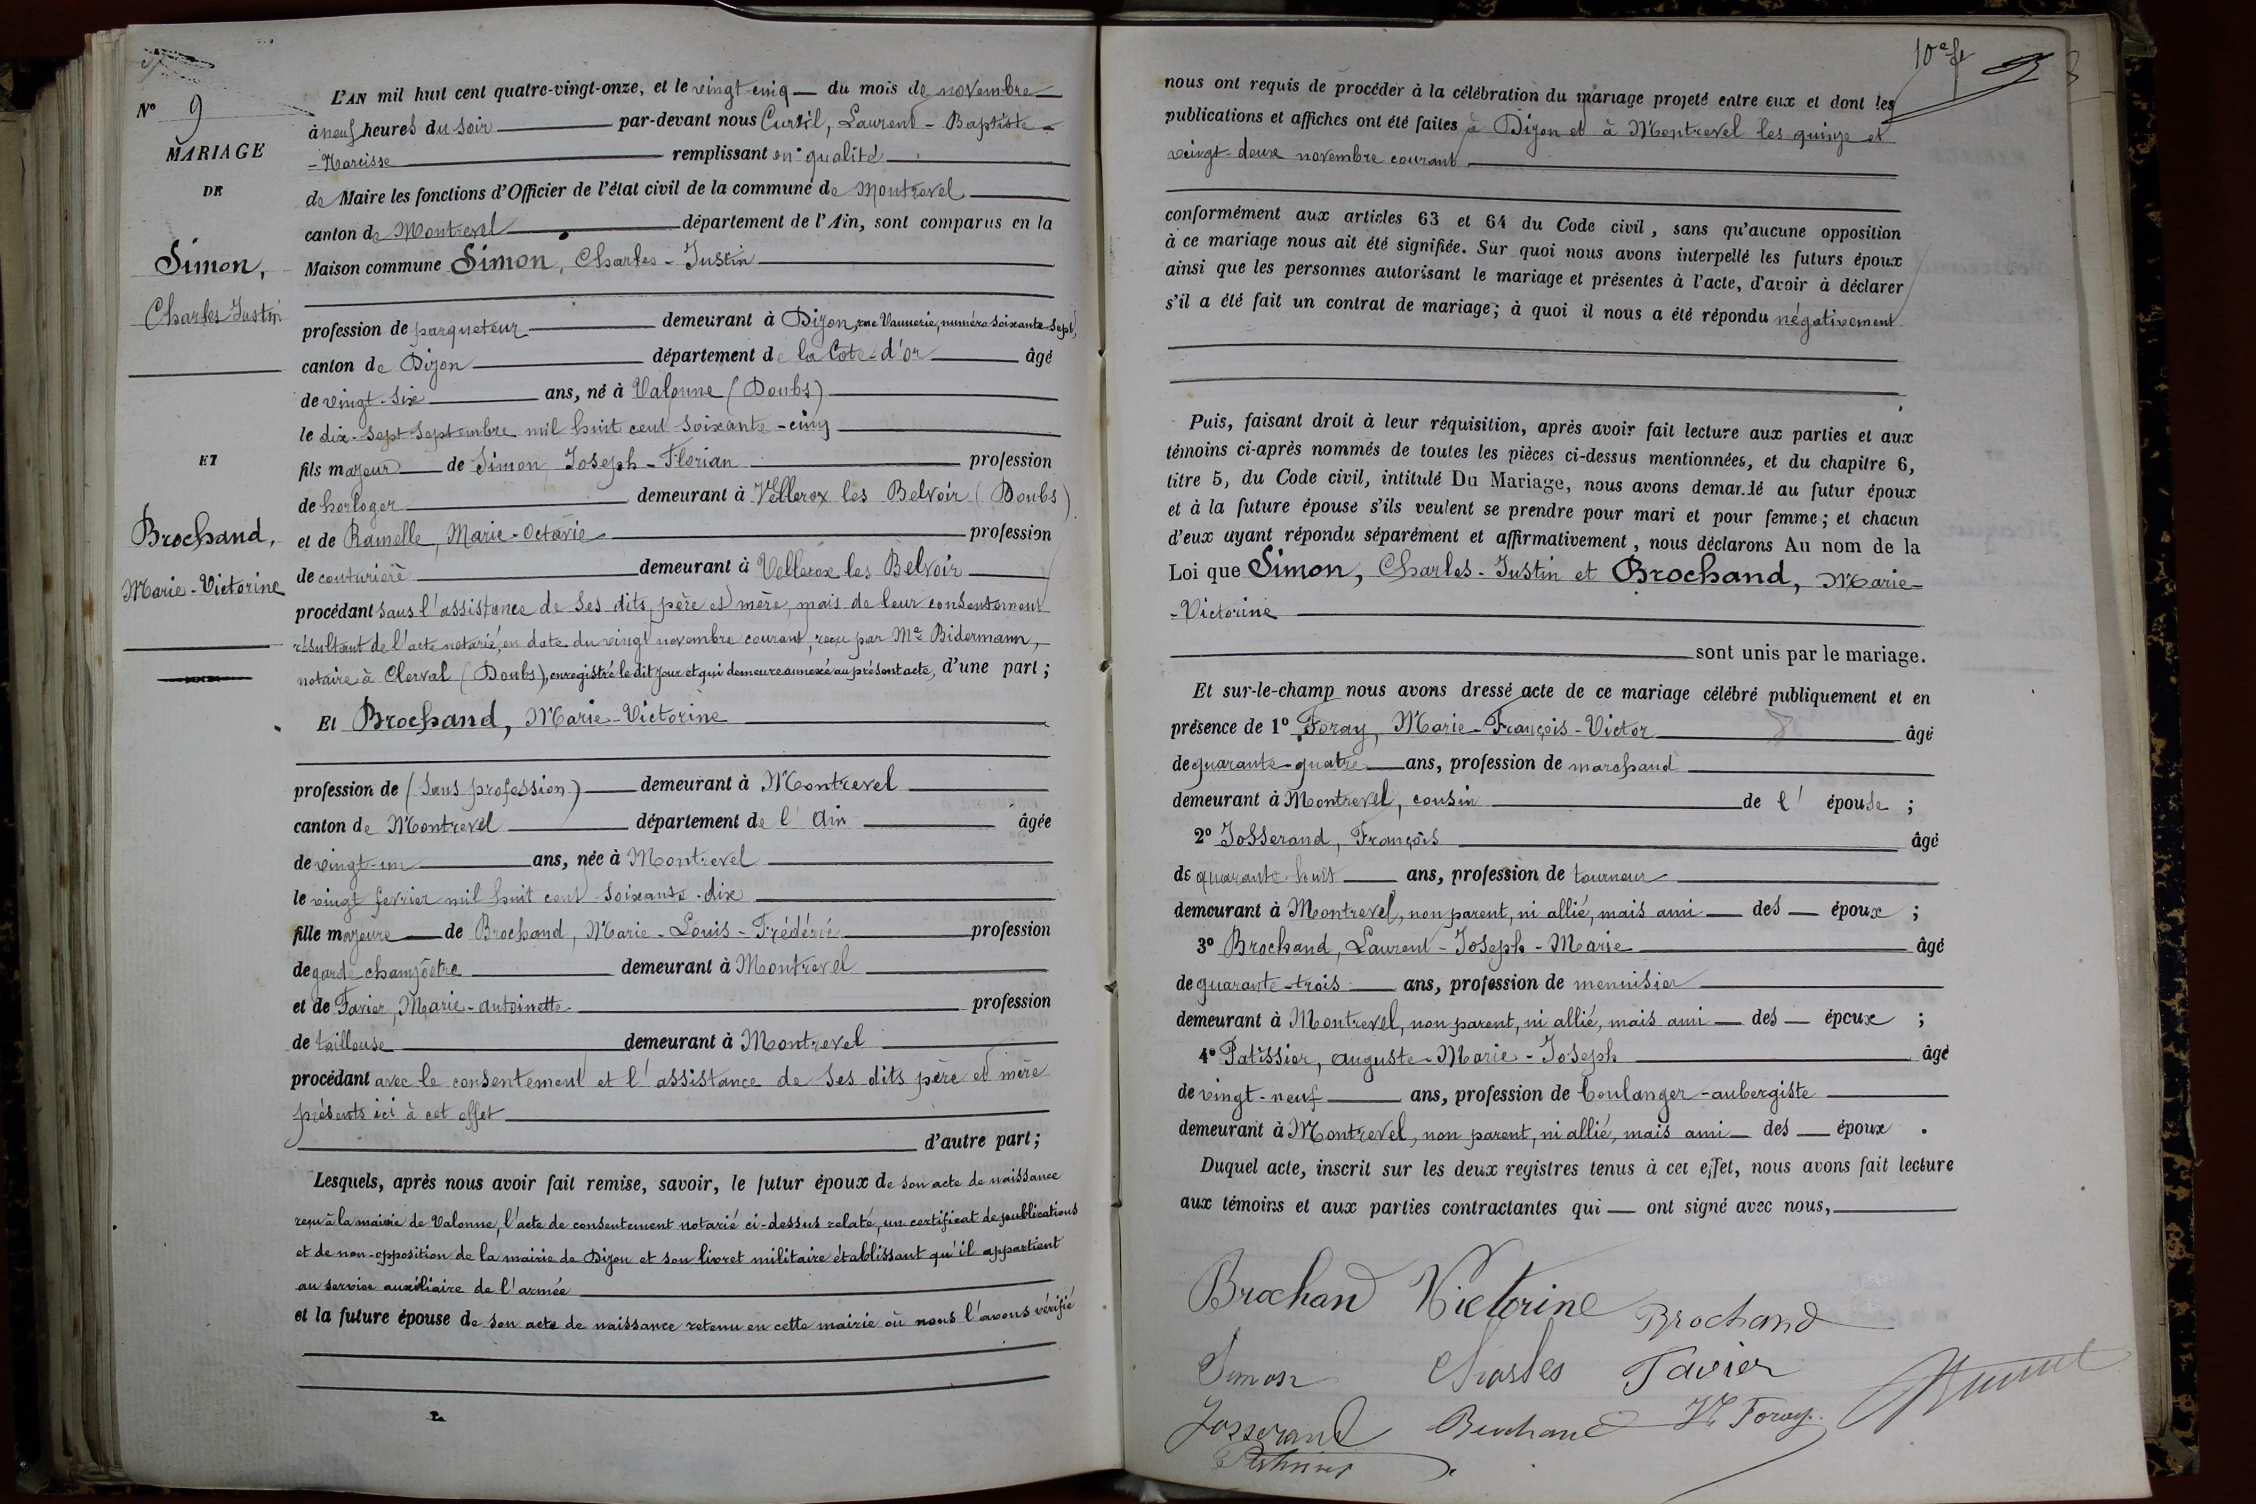 N° 9
MARIAGE
DE
Simon,
Charles Justin
ET
Brochand,
Marie-Victorine
L'AN mil huit cent quatre-vingt-onze, et le vingt-cinq du mois de novembre
à neuf heures du soir par-devant nous Curtil, Laurent-Baptiste-
-Narcisse remplissant en qualité
de Maire les fonctions d'Officier de l'état civil de la commune de Montrevel
canton de Montrevel département de l'Ain, sont comparus en la
Maison commune Simon, Charles-Justin
profession de parqueteur demeurant à Dijon, rue Vannerie, numéro soixante-sept,
canton de Dijon département de la Cote-d'or âgé
de vingt-six ans, né à Valonne (Doubs)
le dix-sept septembre mil huit cent soixante-cinq
fils majeur de Simon Joseph-Florian profession
de horloger demeurant à Vellerox les Belvoir (Doubs)
et de Ramelle, Marie-Octavie profession
de couturière demeurant à Vellerox les Belvoir
procédant sans l'assistance de ses dits père et mère, mais de leur consentement
résultant de l'acte notarié, en date du vingt novembre courant, reçu par Me Bidermann,
notaire à Clerval (Doubs), enregistré le dit jour et qui demeure annexé au présent acte, d'une part;
Et Brochand, Marie-Victorine
profession de (sans profession) demeurant à Montrevel
canton de Montrevel département de l'Ain âgée
de vingt-un ans, née à Montrevel
le vingt fevrier mil huit cent soixante-dix
fille majeure de Brochand, Marie-Louis-Frédéric profession
de garde champêtre demeurant à Montrevel
et de Favier, Marie-antoinette profession
de tailleuse demeurant à Montrevel
procédant avec le consentement et l'assistance de ses dits père et mère
présents ici à cet effet
d'autre part;
Lesquels, après nous avoir fait remise, savoir, le futur époux de son acte de naissance
reçu à la mairie de Valonne, l'acte de consentement notarié ci-dessus relaté, un certificat de publications
et de non-opposition de la mairie de Dijon et son livret militaire établissant qu'il appartient
au service auxiliaire de l'armée
et la future épouse de son acte de naissance retenu en cette mairie où nous l'avons vérifié
10e ft
nous ont requis de procéder à la célébration du mariage projeté entre eux et dont les
publications et affiches ont été faites à Dijon et à Montrevel les quinze et
vingt-deux novembre courant
conformément aux articles 63 et 64 du Code civil, sans qu'aucune opposition
à ce mariage nous ait été signifiée. Sur quoi nous avons interpellé les futurs époux
ainsi que les personnes autorisant le mariage et présentes à l'acte, d'avoir à déclarer
s'il a été fait un contrat de mariage; à quoi il nous a été répondu négativement
Puis, faisant droit à leur réquisition, après avoir fait lecture aux parties et aux
témoins ci-après nommés de toutes les pièces ci-dessus mentionnées, et du chapitre 6,
titre 5, du Code civil, intitulé Du Mariage, nous avons demandé au futur époux
et à la future épouse s'ils veulent se prendre pour mari et pour femme; et chacun
d'eux ayant répondu séparément et affirmativement, nous déclarons Au nom de la
Loi que Simon, Charles-Justin et Brochand, Marie-
-Victorine
sont unis par le mariage.
Et sur-le-champ nous avons dressé acte de ce mariage célébré publiquement et en
présence de 1° Foray, Marie-François-Victor âgé
de quarante-quatre ans, profession de marchand
demeurant à Montrevel, cousin de l'épouse;
2° Josserand, François âgé
de quarante huit ans, profession de tourneur
demeurant à Montrevel, non parent, ni allié, mais ami des époux;
3° Brochand, Laurent-Joseph-Marie âgé
de quarante-trois ans, profession de menuisier
demeurant à Montrevel, non parent, ni allié, mais ami des époux;
4° Patissier, auguste-Marie-Joseph âgé
de vingt-neuf ans, profession de boulanger-aubergiste
demeurant à Montrevel, non parent, ni allié, mais ami des époux.
Duquel acte, inscrit sur les deux registres tenus à cet effet, nous avons fait lecture
aux témoins et aux parties contractantes qui ont signé avec nous,
Brochand Victorine Brochand
Simon Charles Favier
Josserand Brochand Vr Foray
Patissier